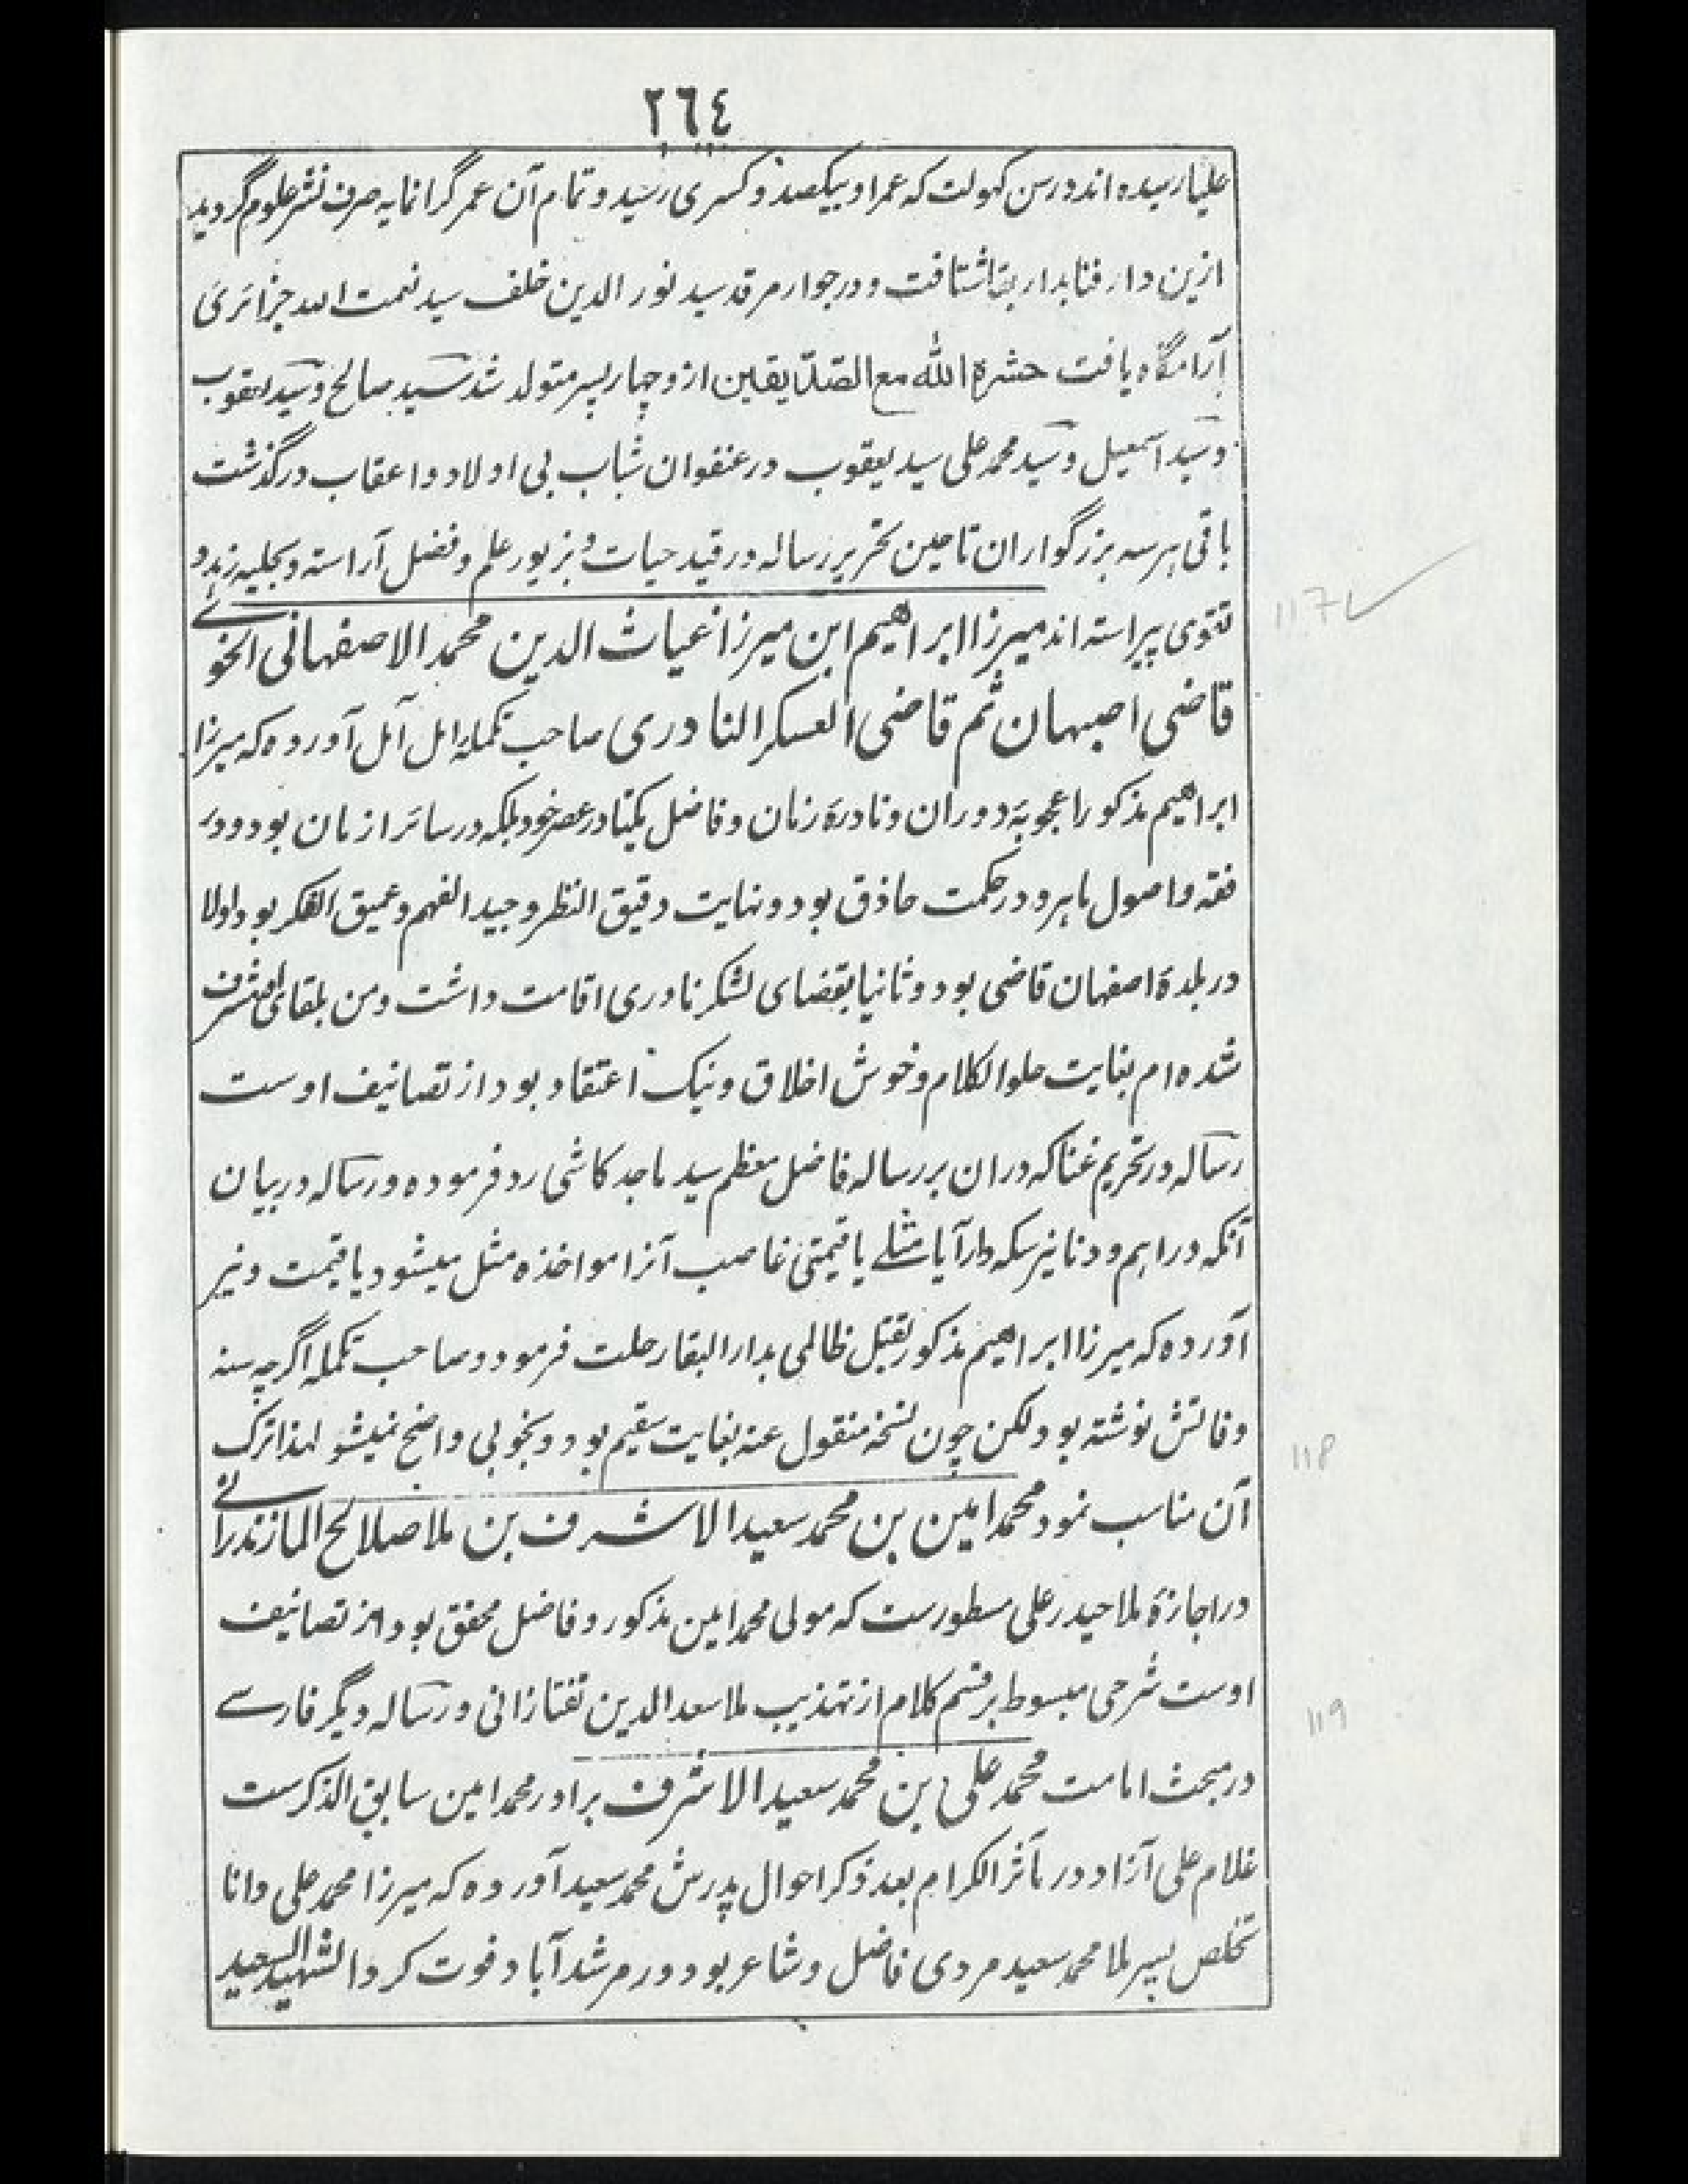 ٢٦٤
علیا رسیده اند در سن کهولت که عمر او بیکصد و کسری رسید و تمام آن عمر گرانمایه صرف نشر علوم گردید
ازین دار فنا بدار بقا شتافت و در جوار مرقد سید نور الدین خلف سید نعمت الله جزائری
آرامگاه یافت حشره الله مع الصدّیقین ازو چهار پسر متولد شد سید صالح و سید یعقوب
و سید اسمعیل و سید محمد علی سید یعقوب در عنفوان شباب بی اولاد و اعقاب درگذشت
باقی هر سه بزرگواران تا حین تحریر رساله در قید حیات و بزیور علم و فضل آراسته و بحلیه زهد و
تقوی پیراسته اند میرزا ابراهیم ابن میرزا غیاث الدین محمد الاصفهانی الخوئے
قاضی اصبهان ثم قاضی العسکر النادری صاحب تکمله امل آمل آورده که میرزا
ابراهیم مذکور اعجوبهٔ دوران و نادرهٔ زمان و فاضل یکتا در عصر خود بلکه در سائر ازمان بود و در
فقه و اصول ماهر و در حکمت حاذق بود و نهایت دقیق النظر و جید الفهم و عمیق الفکر بود اولا
در بلدهٔ اصفهان قاضی بود و ثانیا بقضای لشکر نادری اقامت داشت و من بلقای او مشرف
شده ام بغایت حلو الکلام و خوش اخلاق و نیک اعتقاد بود از تصانیف اوست
رساله در تحریم غنا که دران بر رساله فاضل معظم سید ماجد کاشی رد فرموده و رساله در بیان
آنکه دراهم و دنانیر سکه دار آیا مثلے یا قیمتی غاصب آنرا مواخذه مثل میشود یا قیمت و نیز
آورده که میرزا ابراهیم مذکور بقتل ظالمی بدار البقا رحلت فرمود و صاحب تکمله اگرچه سنه
وفاتش نوشته بود لکن چون نسخه منقول عنه بغایت سقیم بود و بخوبی واضح نمیشو لهذا ترک
آن مناسب نمود محمد امین بن محمد سعید الاشرف بن ملا صلالح المازندرانے
در اجازهٔ ملا حیدر علی مسطورست که مولی محمد امین مذکور و فاضل محقق بود از تصانیف
اوست شرحی مبسوط بر قسم کلام از تهذیب ملا سعد الدین تفتازانی و رساله دیگر فارسے
در مبحث امامت محمد علی بن محمد سعید الاشرف برادر محمد امین سابق الذکرست
غلام علی آزاد در مآثر الکرام بعد ذکر احوال پدرش محمد سعید آورده که میرزا محمد علی دانا
تخلص پسر ملا محمد سعید مردی فاضل و شاعر بود و در مرشد آباد فوت کرد الشهید السعید
117
118
119